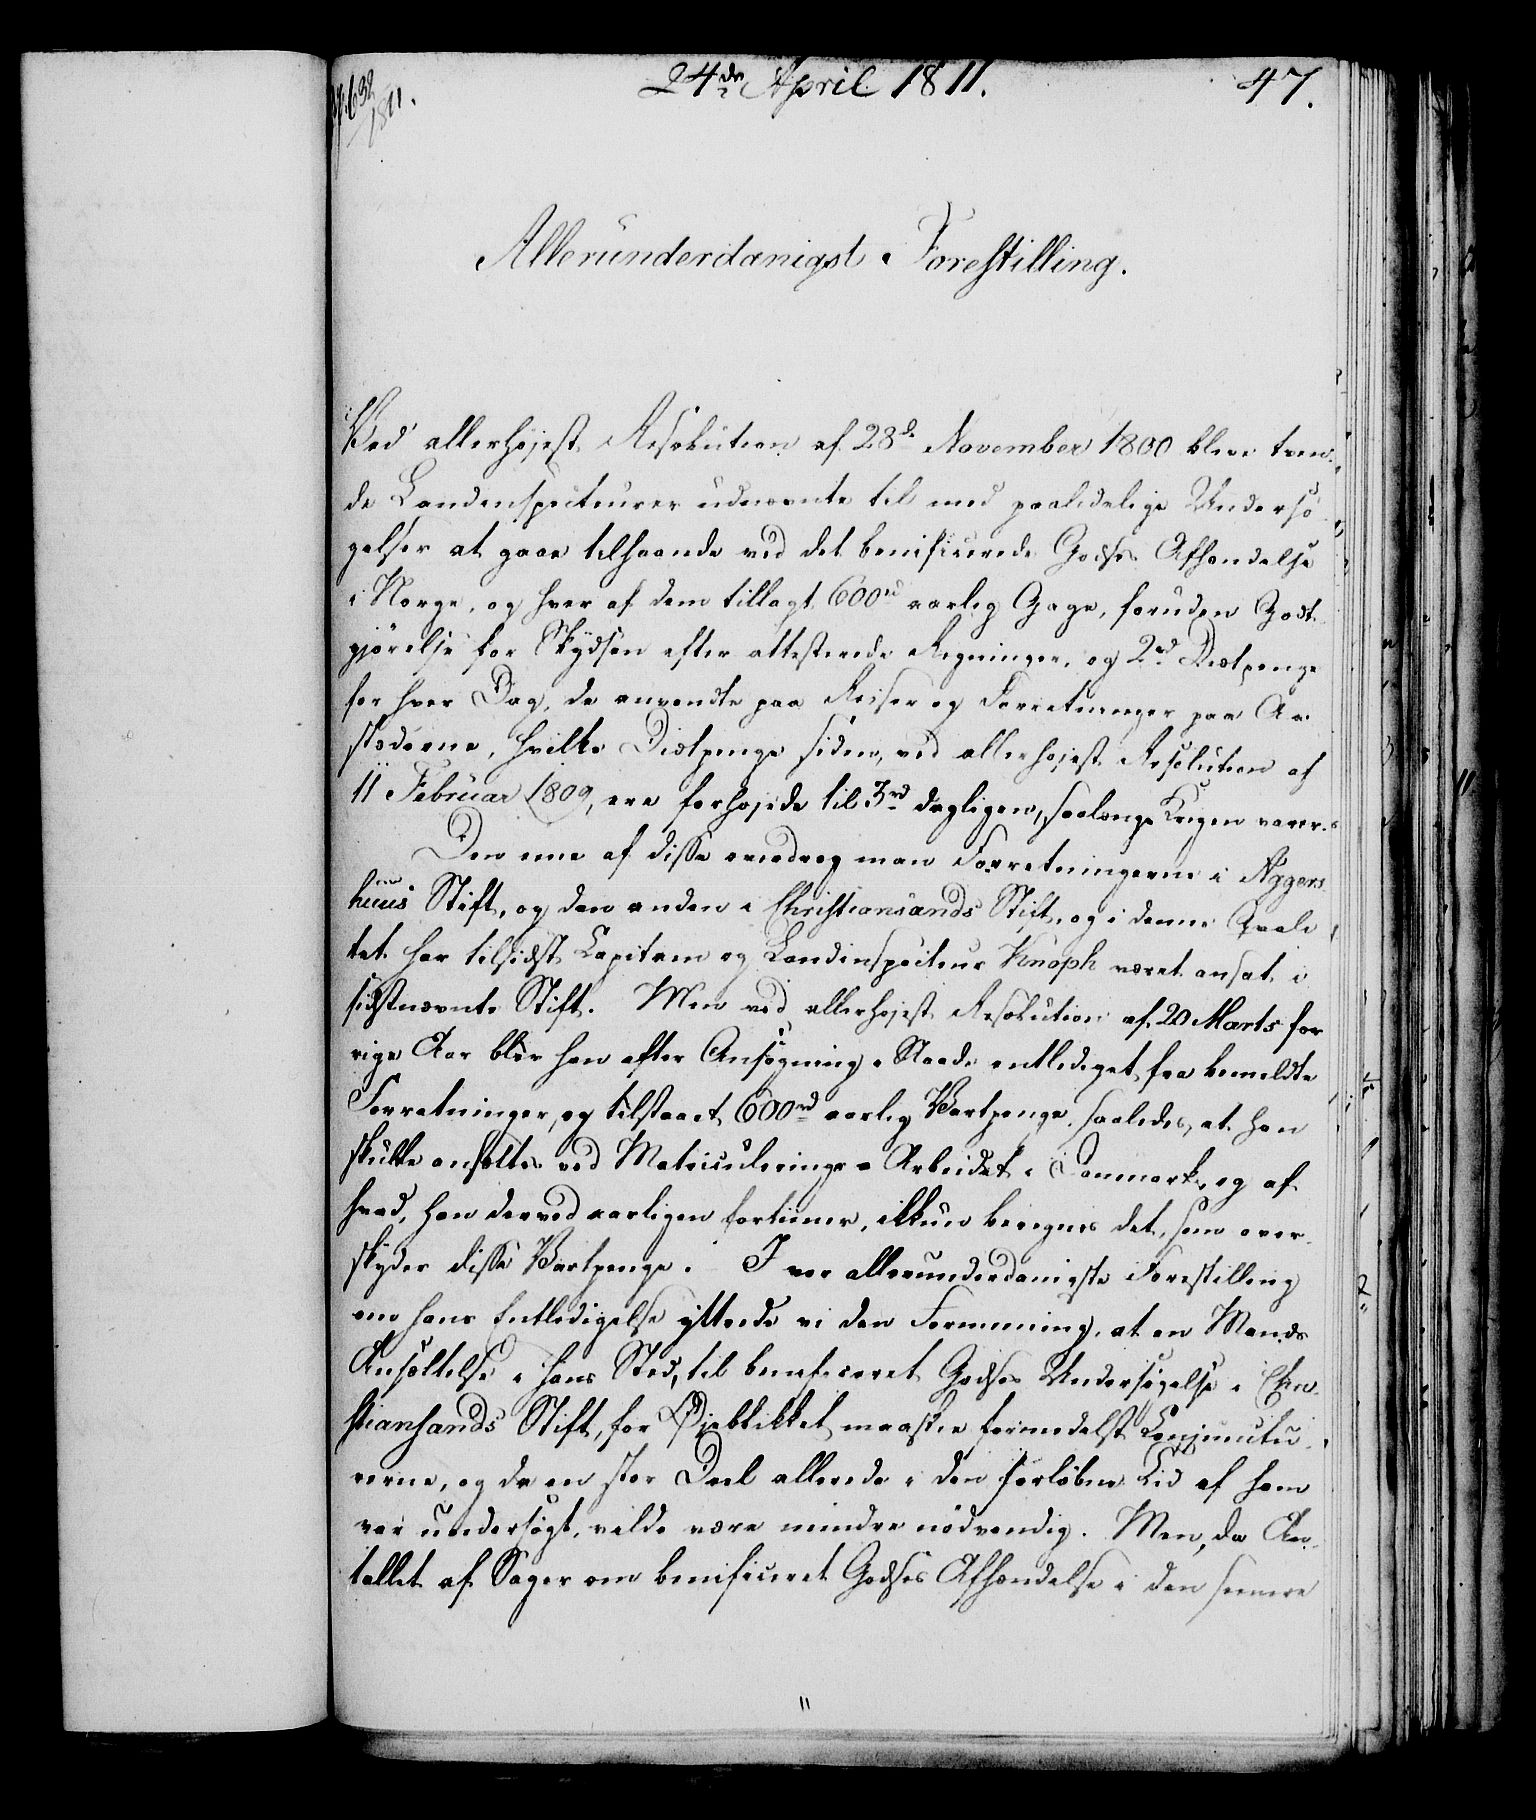 632
1811.
24de April 1811.
47.
Allerunderdanigst Forestilling.
Ved allerhøjest Resolution af 28de November 1800 bleve tven-
de Landinspecteurer udnævnte til med paalidelige Undersø-
gelser at gaae tilhaande ved det beneficerede Godses Afhændelse
i Norge, og hver af dem tillagt 600rd aarlig Gage, foruden Godt-
gjørelse for Skydsen efter attesterede Regninger, og 2rd Diætpenge
for hver Dag, de anvendte paa Reiser og Forretninger paa Aa-
stæderne, hvilke Diætpenge siden, ved allerhøjest Resolution af
11 Februar 1809, ere forhøjede til 3rd dagligen, saalænge Krigen varer.
Den ene af disse overdrog man Forretningerne i Aggers-
huus Stift, og den anden i Christiansands Stift, og i denne Qvali-
tet har tilsidst Capitain og Landinspecteur Knoph været ansat i
sidstnævnte Stift. Men ved allerhøjest Resolution af 20 Marts for-
rige Aar blev han efter Ansøgning i Naade entlediget fra bemeldte
Forretninger, og tilstaaet 600rd aarlig Vartpenge, saaledes, at han
skulde ansættes ved Matriculerings-Arbeidet i Danmark, og af
hvad, han derved aarligen fortiener, ikkun beregnes det, som over-
skyder disse Vartpenge. I vor allerunderdanigste Forestilling
om hans Entledigelse yttrede vi den Formening, at en Mands
Ansættelse i hans Sted, til beneficeret Godses Undersøgelse i Chri-
stiansands Stift, for Øjeblikket maaskee formedelst Conjunctu-
rerne, og da en stor Deel allerede i den forløbne Tid af ham
var undersøgt, vilde være mindre nødvendig. Men, da An-
tallet af Sager om beneficeret Godses Afhændelse i den senere